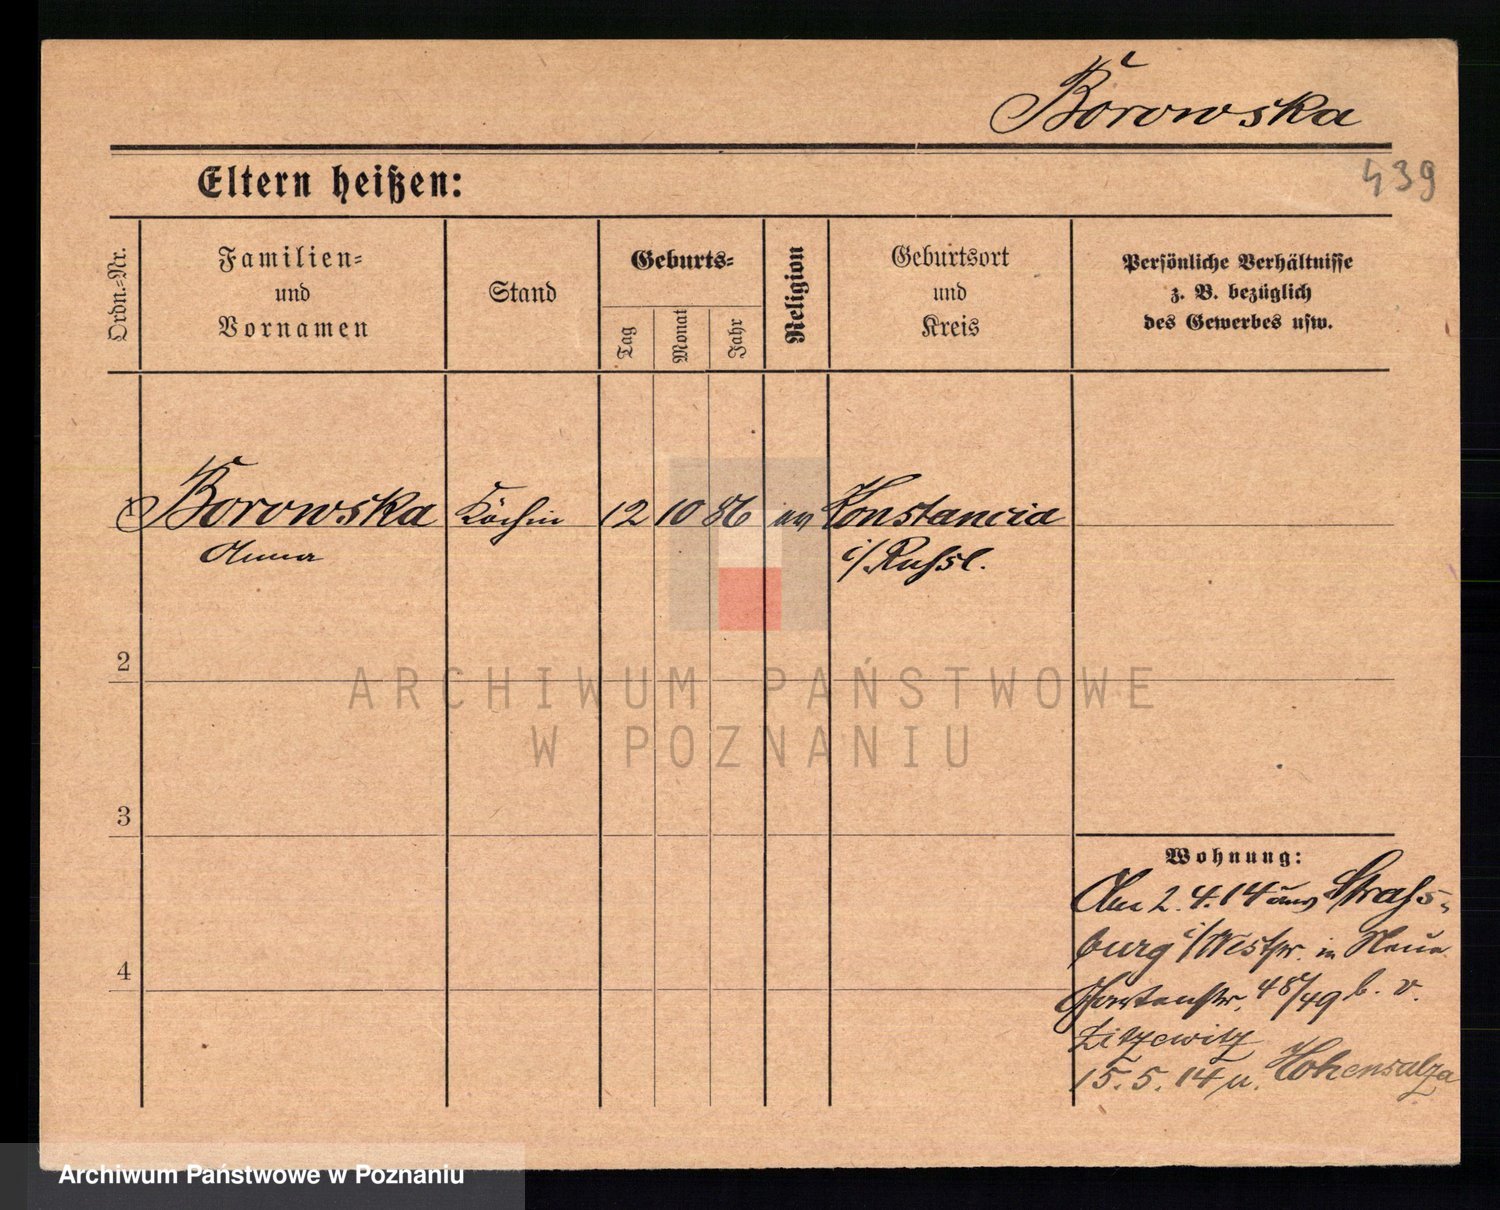 Borowska
439
Eltern heißen:
Ordn.-Nr.
Familien-
und
Vornamen
Stand
Geburts-
Tag
Monat
Jahr
Religion
Geburtsort
und
Kreis
Persönliche Verhältnisse
z. B. bezüglich
des Gewerbes usw.
1 Borowska Köchin 12 10 86 ev Konstancia
Anna i/Russl.
2
ARCHIWUM PAŃSTWOWE
W POZNANIU
3
4
Wohnung:
Am 2.4.14 aus Strass-
burg i/Westpr. in Neue
Gartenstr. 48/49 b. v.
Zitzewitz
15.5.14 n. Hohensalza
Archiwum Państwowe w Poznaniu